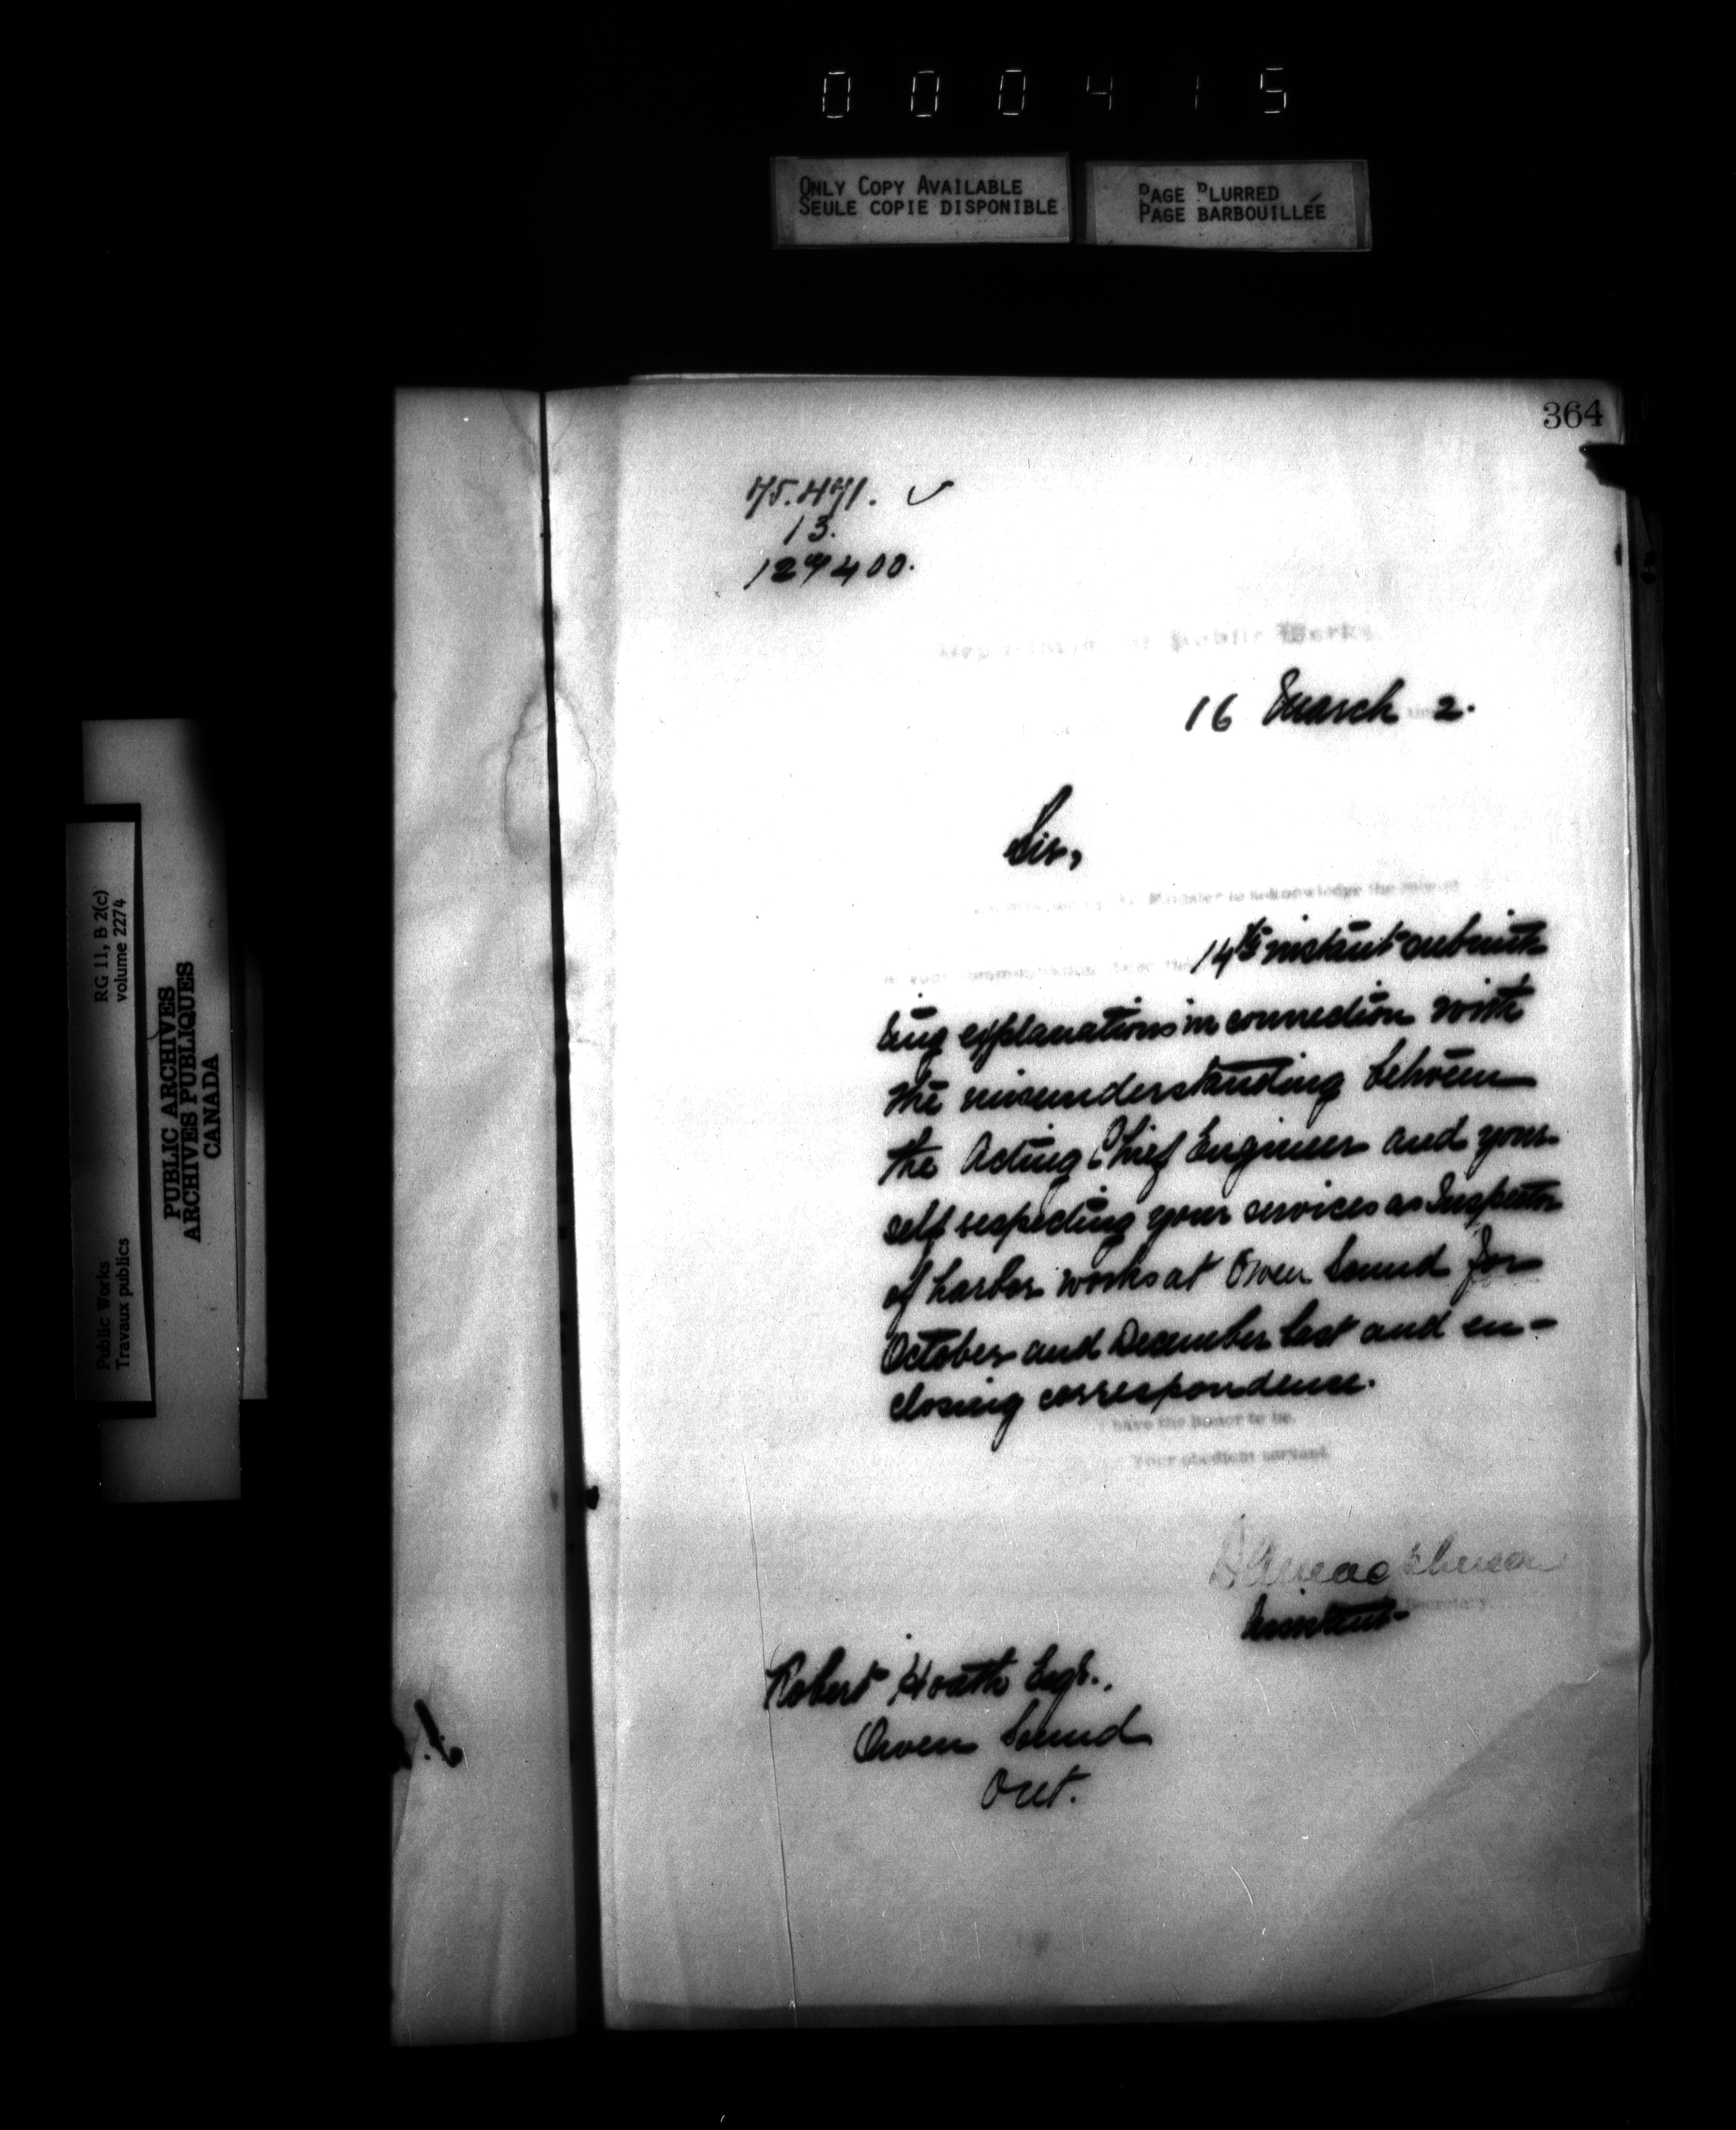 000415
ONLY COPY AVAILABLE
SEULE COPIE DISPONIBLE
PAGE BLURRED
PAGE BARBOUILLÉE
364
75.471.
13.
127400.
Department of Public Works.
16 March 2.
Sir,
Minister to acknowledge the receipt
14th instant submitt
ing explanations in connection with
the misunderstanding between
the Acting Chief Engineer and your
self respecting your services as Inspector
of harbor works at Owen Sound for
October and December last and en-
closing correspondence.
have the honor to be,
Your obedient servant
Assistant Secretary.
Robert Hoath Esqr.,
Owen Sound
Ont.
RG 11, B 2(c)
volume 2274
Public Works
Travaux publics
PUBLIC ARCHIVES
ARCHIVES PUBLIQUES
CANADA